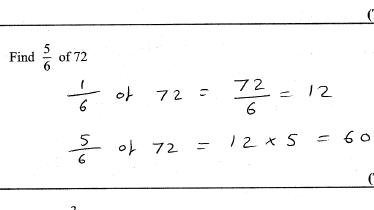 (
Find 5/6 of 72
1/6 of 72 = 72/6 = 12
5/6 of 72 = 12 × 5 = 60
(